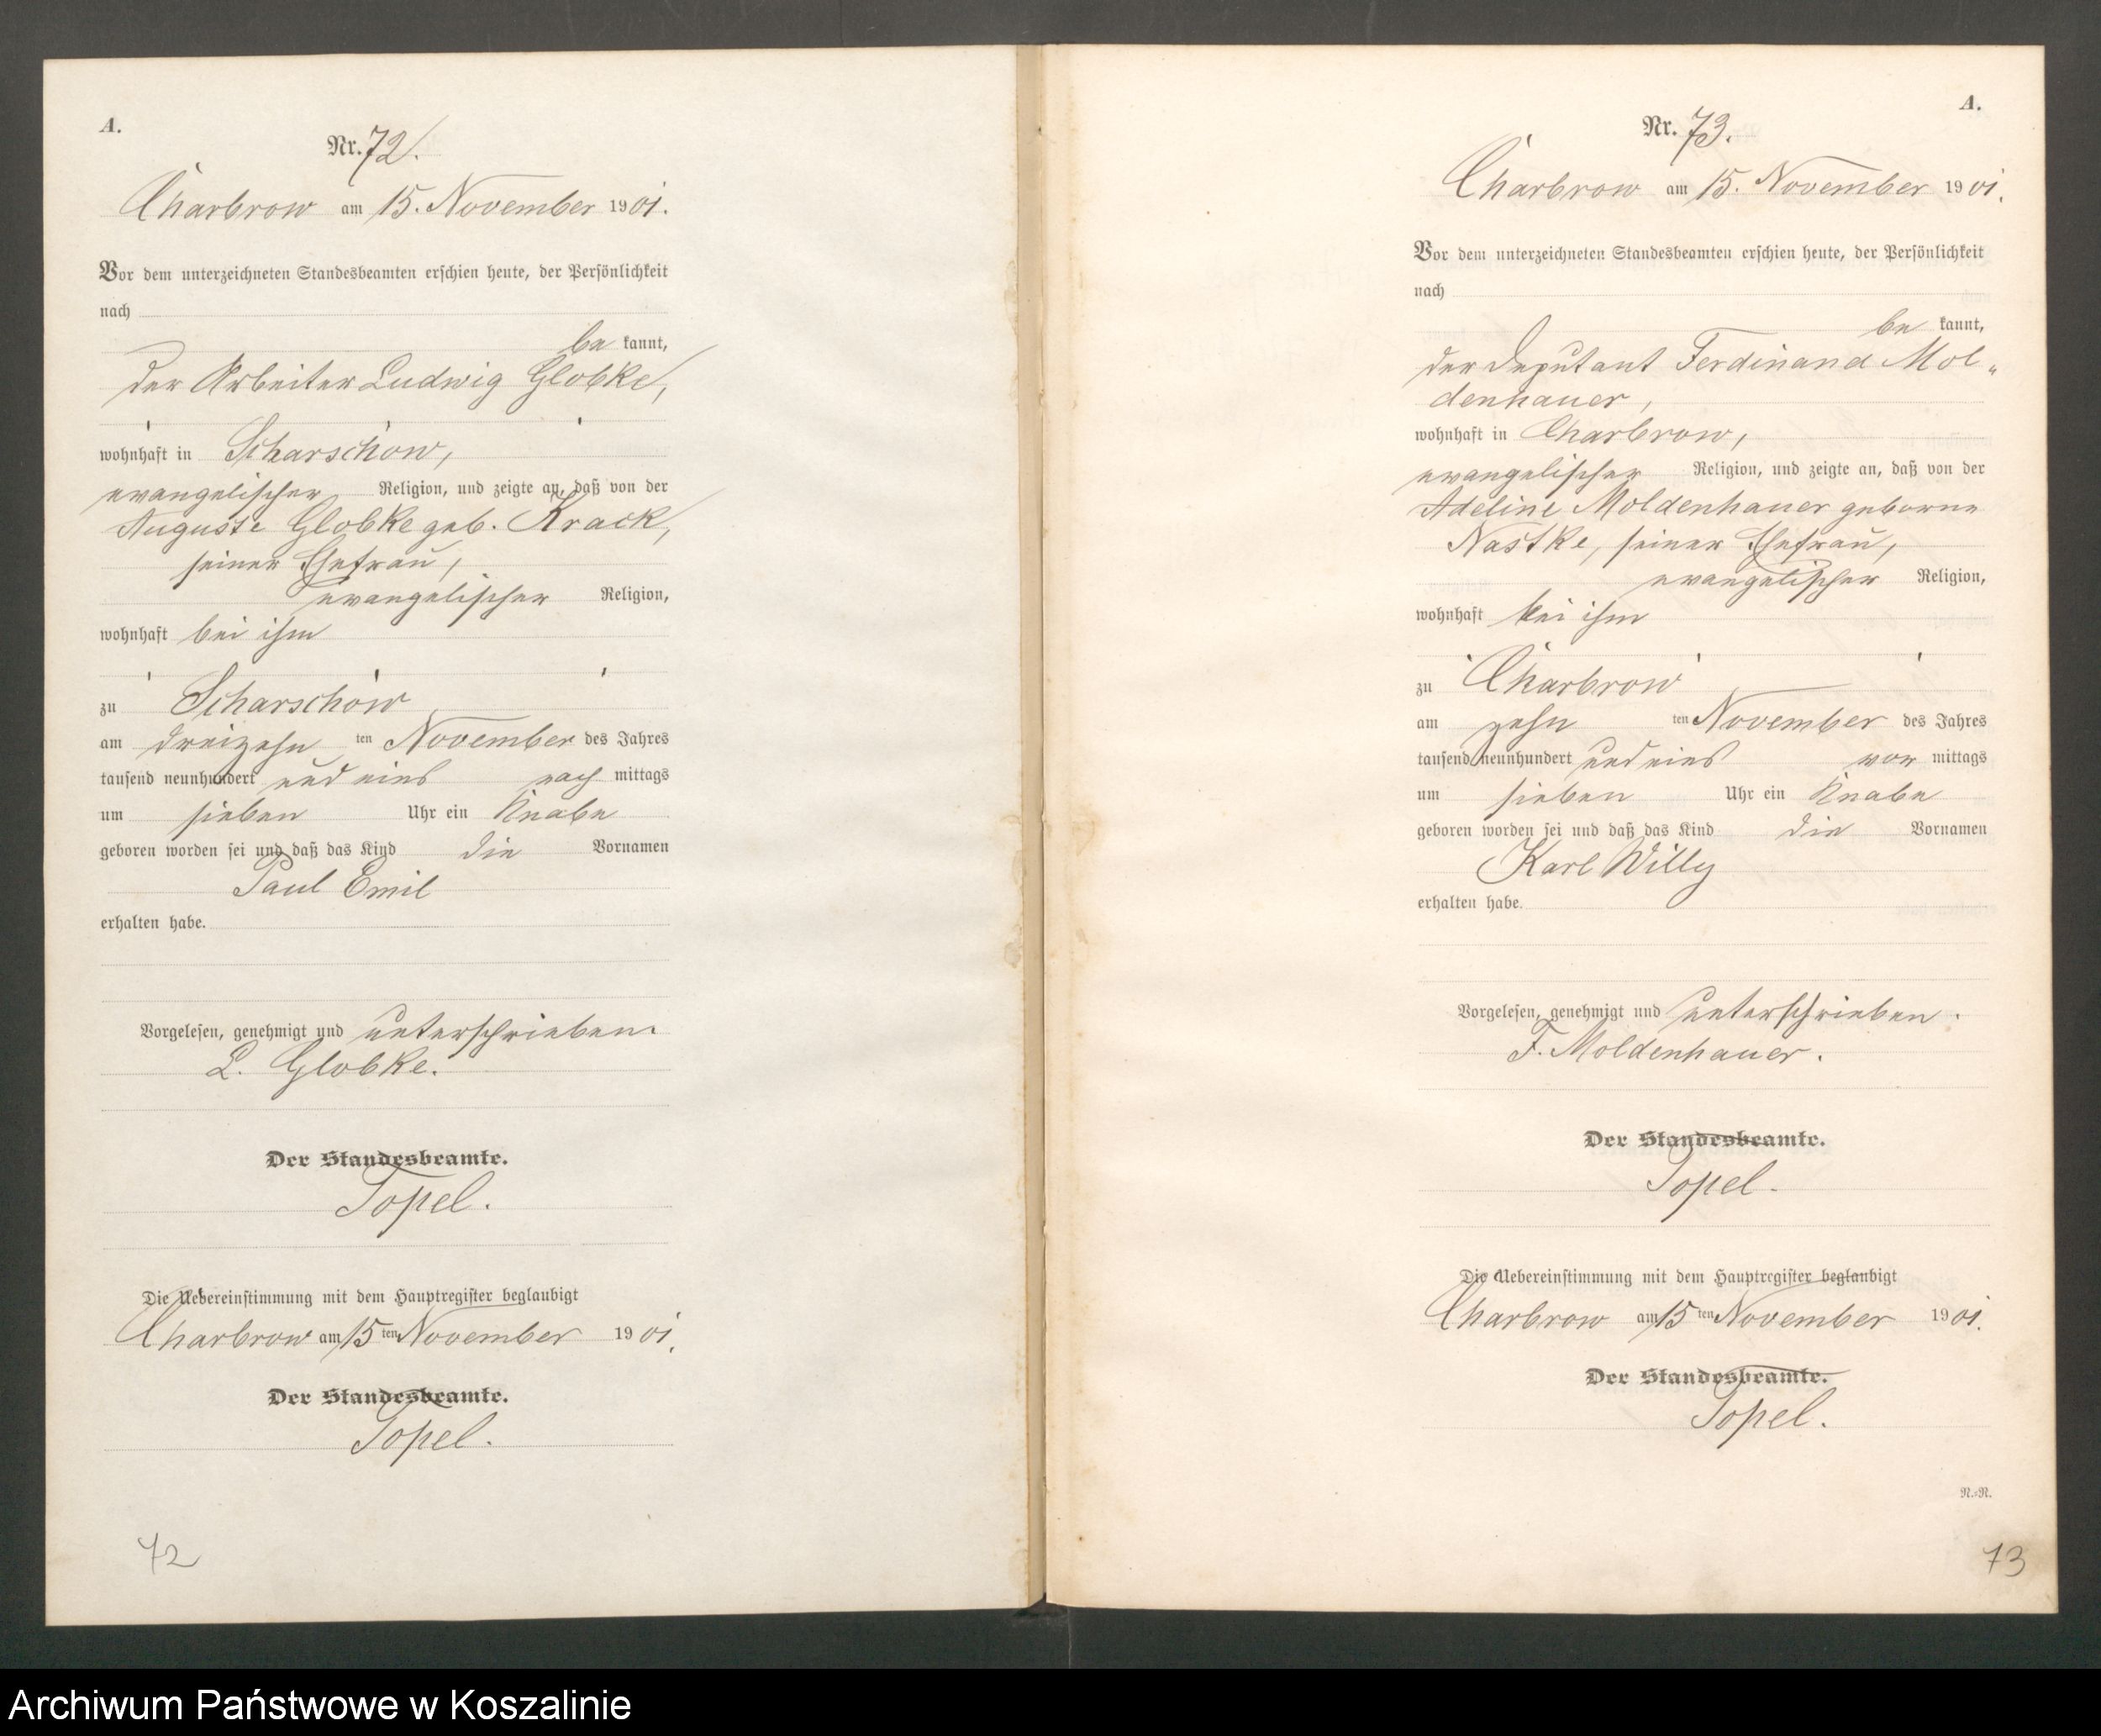 A.
Nr. 72.
Charbrow am 15. November 1901.
Vor dem unterzeichneten Standesbeamten erschien heute, der Persönlichkeit
nach
be kannt,
der Arbeiter Ludwig Globke,
wohnhaft in Scharschow,
evangelischer Religion, und zeigte an, daß von der
Auguste Globke geb. Krack,
seiner Ehefrau,
evangelischer Religion,
wohnhaft bei ihm
zu Scharschow
am dreizehn ten November des Jahres
tausend neunhundert und eins nach mittags
um sieben Uhr ein Knabe
geboren worden sei und daß das Kind die Vornamen
Paul Emil
erhalten habe.
Vorgelesen, genehmigt und unterschrieben.
L. Globke.
Der Standesbeamte.
Topel.
Die Uebereinstimmung mit dem Hauptregister beglaubigt
Charbrow am 15 ten November 1901.
Der Standesbeamte.
Topel.
72
A.
Nr. 73.
Charbrow am 15. November 1901.
Vor dem unterzeichneten Standesbeamten erschien heute, der Persönlichkeit
nach
be kannt,
der Deputant Ferdinand Mol„
denhauer,
wohnhaft in Charbrow,
evangelischer Religion, und zeigte an, daß von der
Adeline Moldenhauer geborne
Nastke, seiner Ehefrau,
evangelischer Religion,
wohnhaft bei ihm
zu Charbrow
am zehn ten November des Jahres
tausend neunhundert und eins vor mittags
um sieben Uhr ein Knabe
geboren worden sei und daß das Kind die Vornamen
Karl Willy
erhalten habe.
Vorgelesen, genehmigt und unterschrieben.
F. Moldenhauer.
Der Standesbeamte.
Topel.
Die Uebereinstimmung mit dem Hauptregister beglaubigt
Charbrow am 15 ten November 1901.
Der Standesbeamte.
Topel.
N.=R.
73
Archiwum Państwowe w Koszalinie